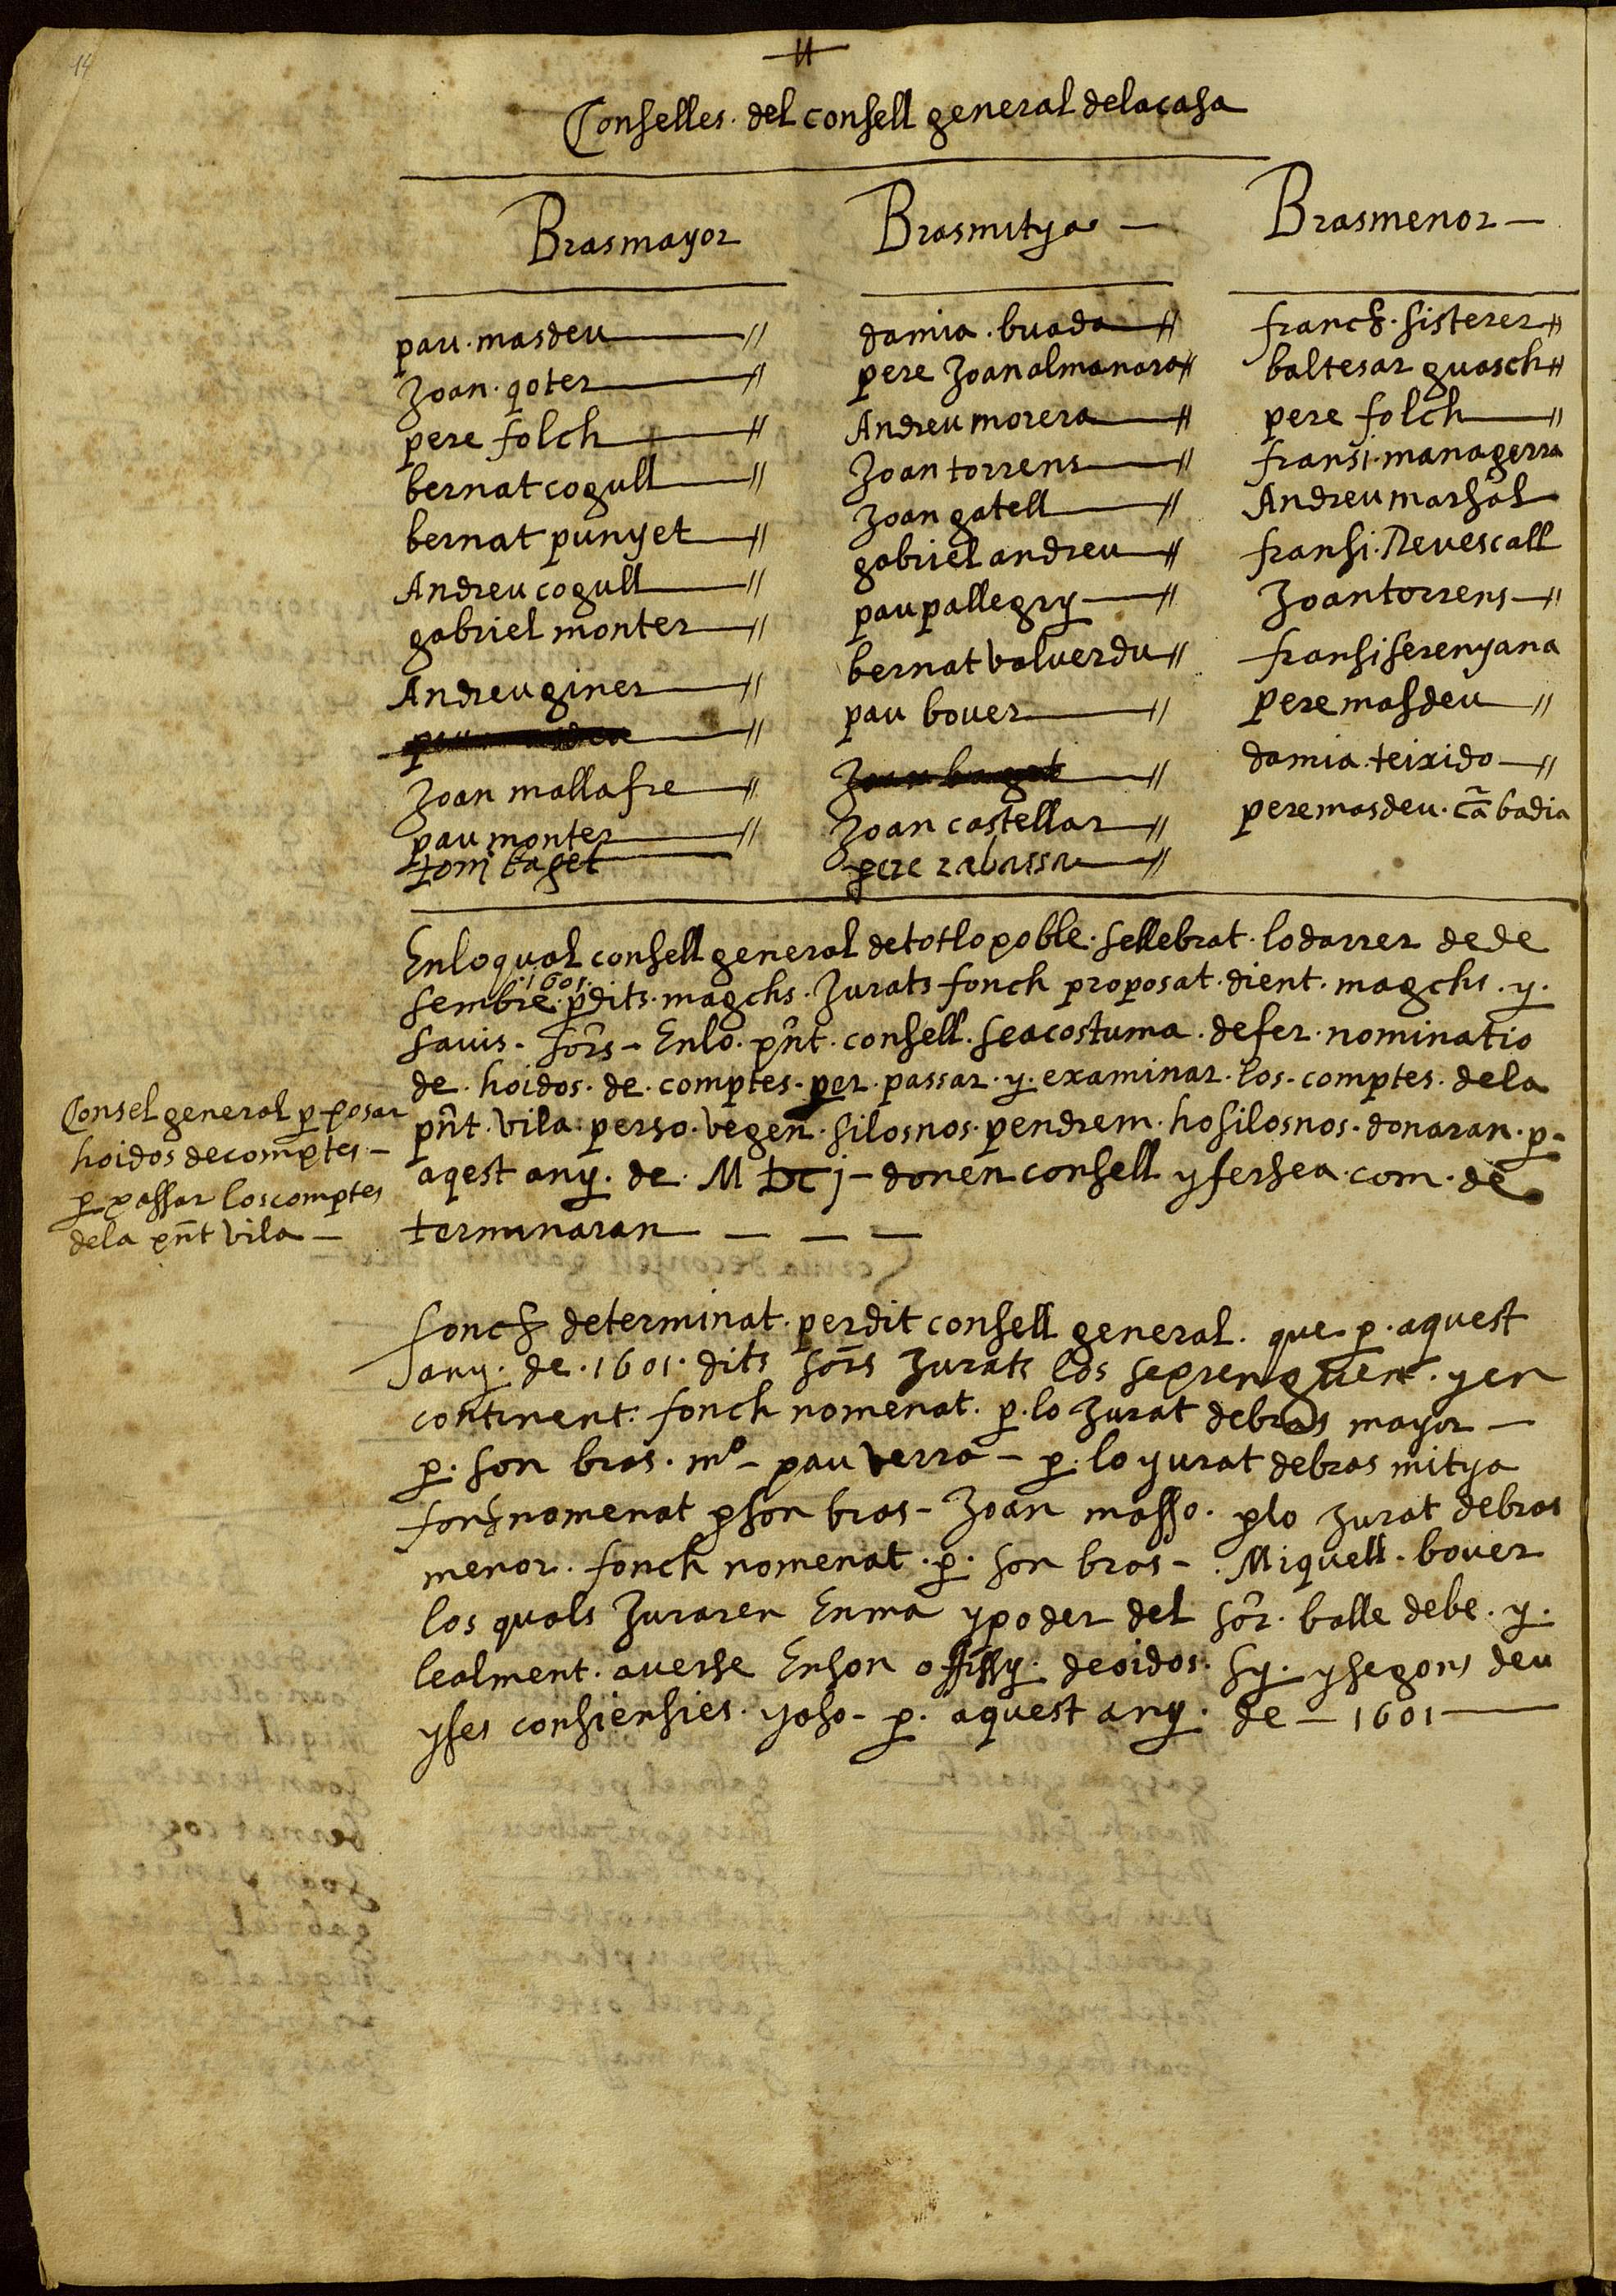 14
Conselles. del consell general delacasa
Brasmayor
pau. masdeu
Joan. qoter
pere folch
bernat cogull
bernat punyet
Andreu cogull
gabriel monter
Andreu giner
Joan mallafre
pau monter
tomj baget
Brasmitya
damia. buada
pere Joan almanara
Andreu morera
Joan torrens
Joan gatell
gabriel andreu
pau pallegry
bernat valuerdu
pau bouer
Joan baget
Joan castellar
pere rabassa
Brasmenor
franch. sisterer
baltesar guasch
pere folch
fransi. managerra
Andreu marsal
fransi. Reuescall
Joan torrens
fransi serenyana
pere masdeu
damia. teixido
pere masdeu. cã badia
Enloqual consell general detotlopoble. sellebrat. lodarrer dede
sembre. 1601. p̱dits. magchs. Jurats fonch proposat. dient. magchs. y.
sauis. sõrs - Enlo. pñt. consell. seacostuma. defer. nominatio
de. hoidos. de. comptes. per. passar. y. examinar. los. comptes. dela
pñt. vila: perso. vegeñ. silosnos. pendrem. hosilosnos. donaran. p̱.
aqest any. de. M DC j - donen consell y fersea. com. de
terminaran
Consel general p̱ posar
hoidos decomptes -
p̱ passar loscomptes
dela pñt vila -
fonch determinat. perdit consell general. que. p̱. aquest
any. de. 1601. dits sõrs Jurats los seprenguen. y en
continent: fonch nomenat. p̱. lo Jurat debras mayor -
p̱. son bras. mº - pau verra - p̱. lo yurat debras mitya
fonh nomenat p̱ son bras - Joan masso. p̱lo Jurat debras
menor. fonch nomenat. p̱. son bras - . Miquell. bouer
los quals Juraren Enma y poder del sõr. balle debe. y.
lealment. auerse Enson offissy. deoidos. sy. y segons deu
y ses consiensies. yaso - p̱. aquest any. de - 1601